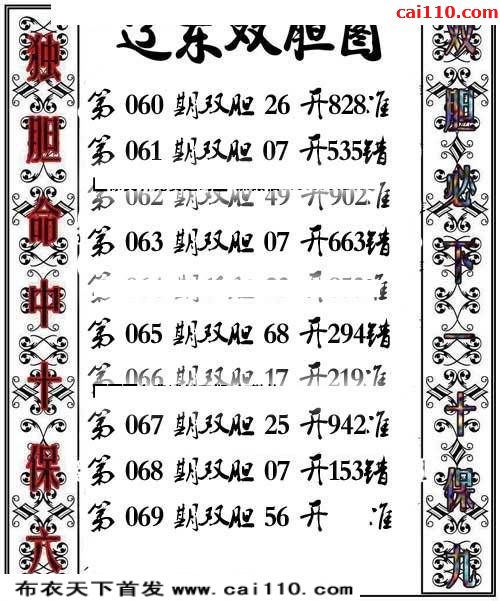 cai110.com
辽东双胆图
独胆命中十保六
双胆必下一十保九
第 060 期双胆 26 开828准
第 061 期双胆 07 开535错
第 062 期双胆 49 开902准
第 063 期双胆 07 开663错
第 065 期双胆 68 开294错
第 066 期双胆 17 开219准
第 067 期双胆 25 开942准
第 068 期双胆 07 开153错
第 069 期双胆 56 开 准
布衣天下首发 www.cai110.com